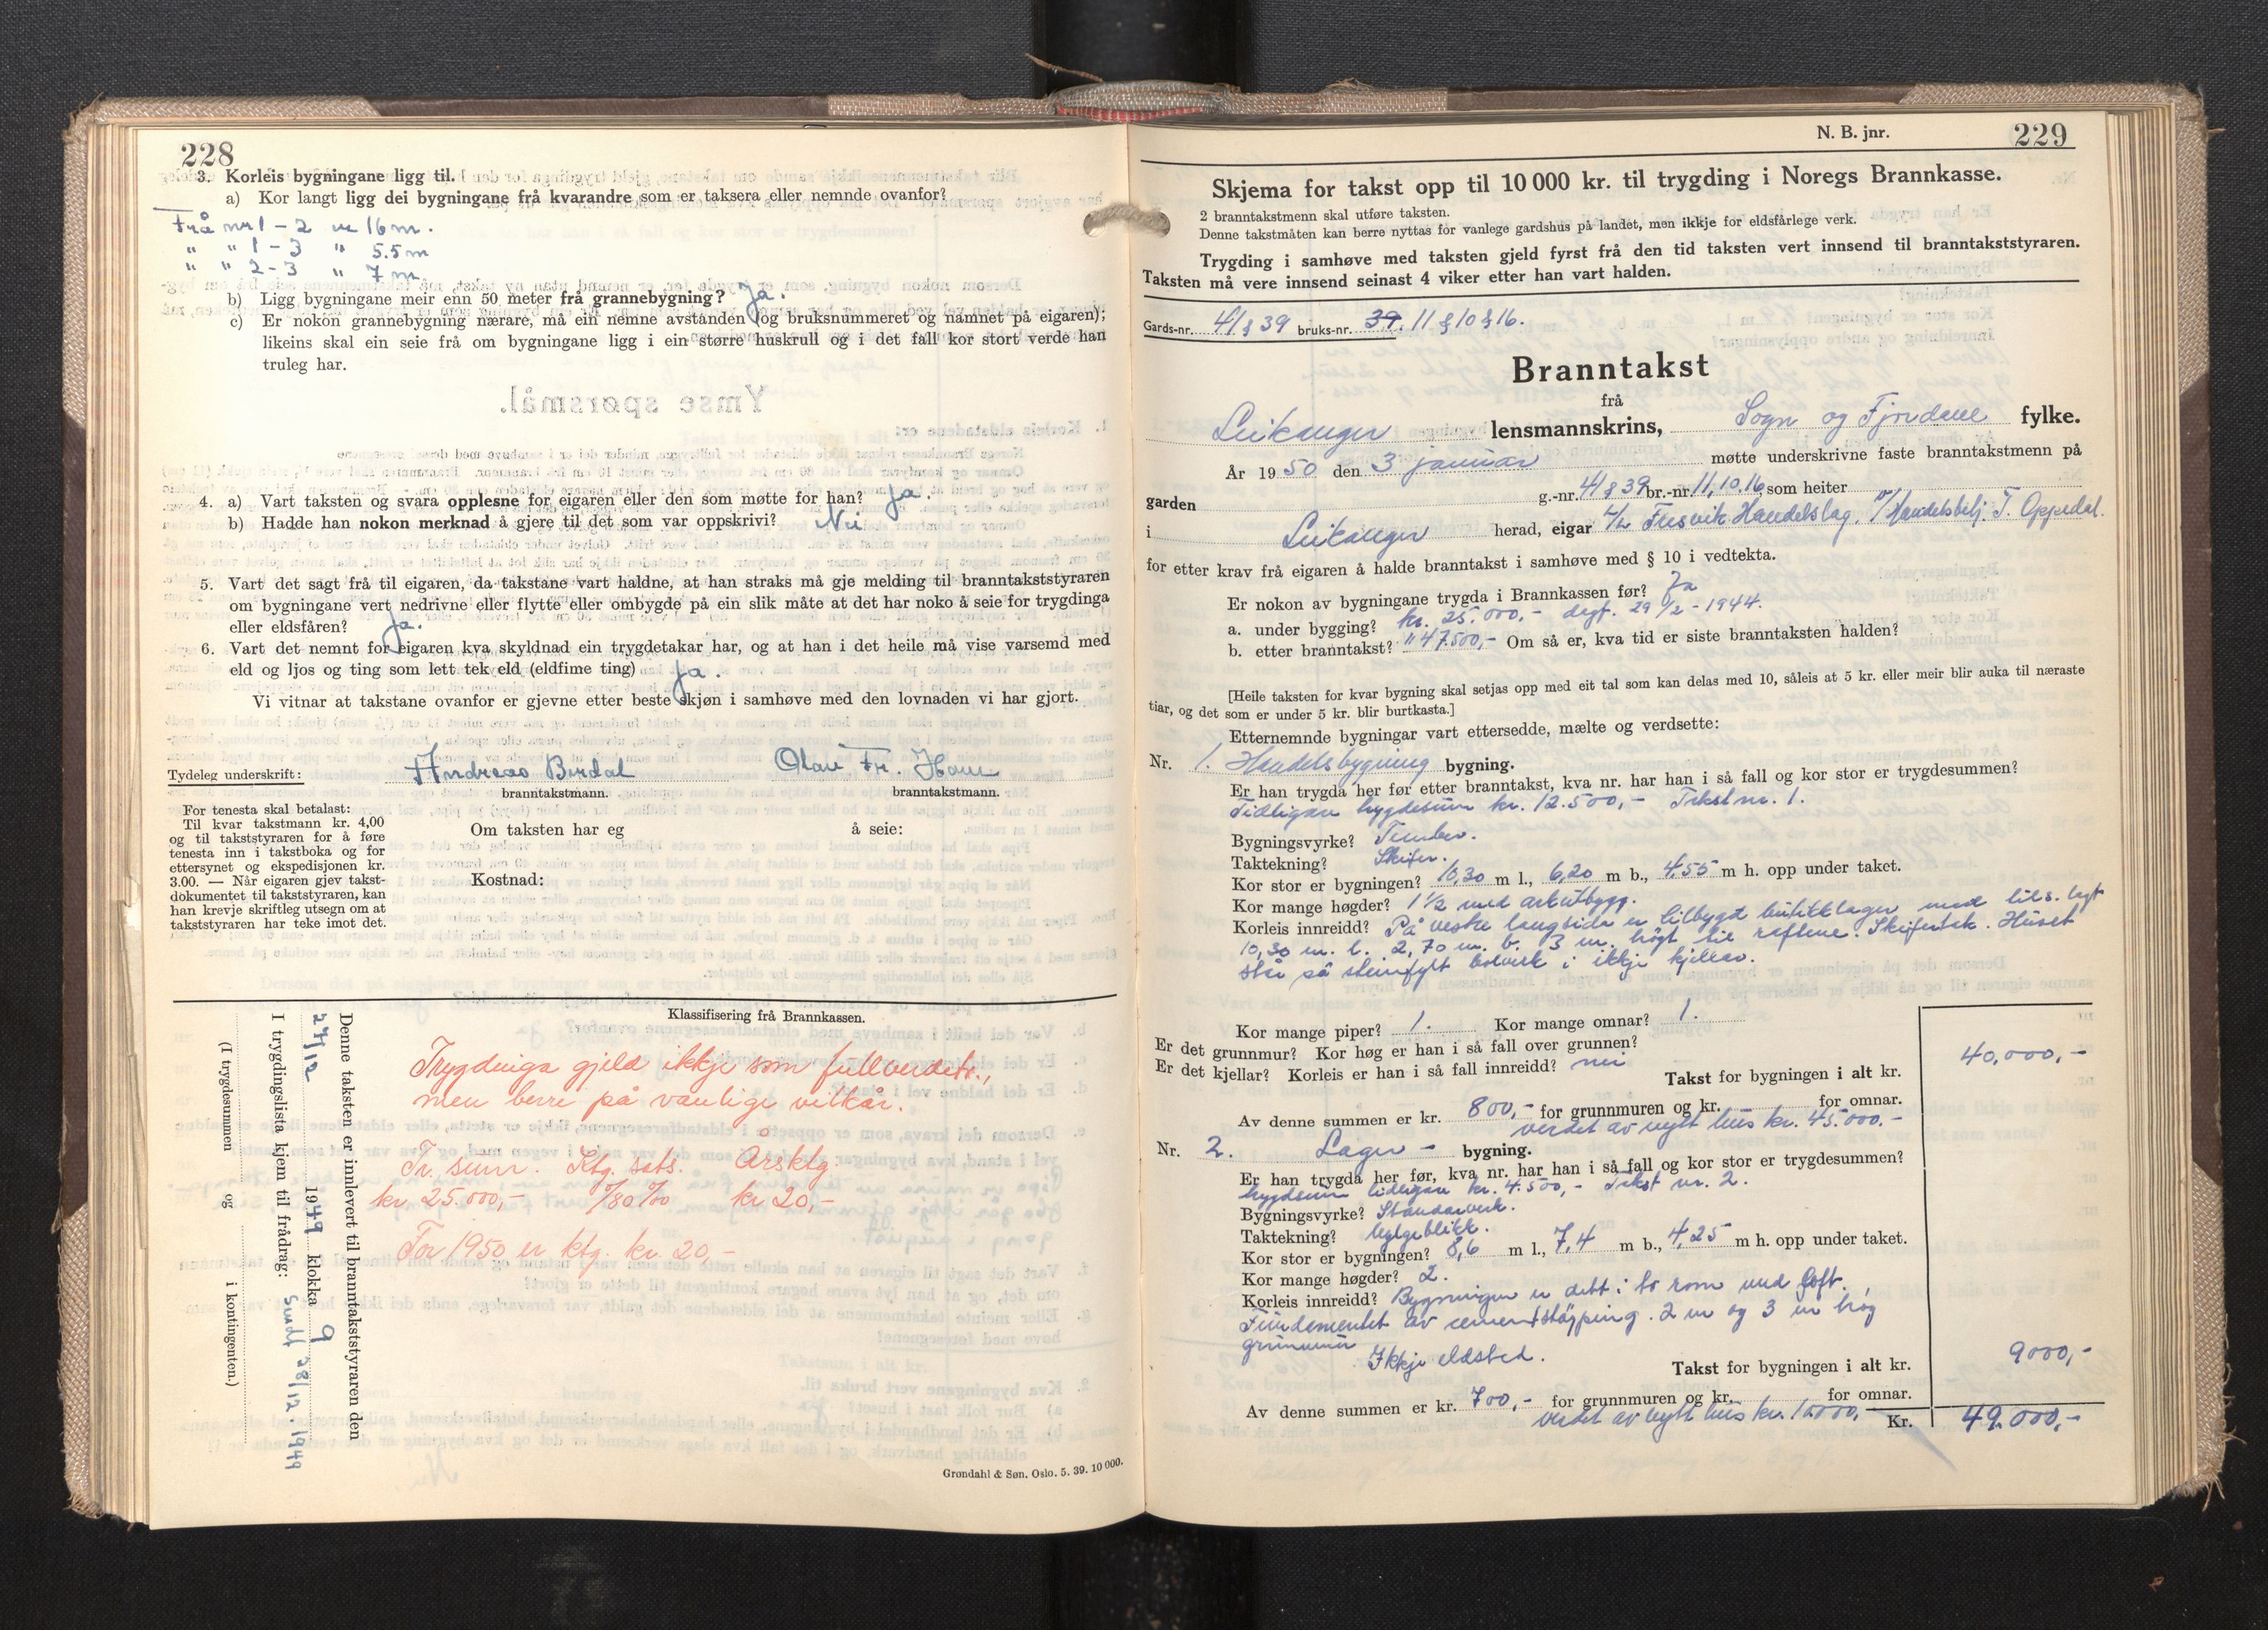 228
3. Korleis bygningane ligg til.
a) Kor langt ligg dei bygningane frå kvarandre som er taksera eller nemnde ovanfor?
Frå nr 1 - 2 er 16 m.
" " 1 - 3 " 5.5 m
" " 2 - 3 " 7 m
b) Ligg bygningane meir enn 50 meter frå grannebygning? Ja.
c) Er nokon grannebygning nærare, må ein nemne avstanden (og bruksnummeret og namnet på eigaren);
likeins skal ein seie frå om bygningane ligg i ein større huskrull og i det fall kor stort verde han
truleg har.
4. a) Vart taksten og svara opplesne for eigaren eller den som møtte for han? Ja.
b) Hadde han nokon merknad å gjere til det som var oppskrivi? Nei
5. Vart det sagt frå til eigaren, da takstane vart haldne, at han straks må gje melding til branntakststyraren
om bygningane vert nedrivne eller flytte eller ombygde på ein slik måte at det har noko å seie for trygdinga
eller eldsfåren? Ja.
6. Vart det nemnt for eigaren kva skyldnad ein trygdetakar har, og at han i det heile må vise varsemd med
eld og ljos og ting som lett tek eld (eldfime ting) Ja.
Vi vitnar at takstane ovanfor er gjevne etter beste skjøn i samhøve med den lovnaden vi har gjort.
Tydeleg underskrift: Andreas Burdal Olav Fr. Ham
branntakstmann. branntakstmann.
For tenesta skal betalast:
Til kvar takstmann kr. 4,00
og til takststyraren for å føre
tenesta inn i takstboka og for
ettersynet og ekspedisjonen kr.
3.00. — Når eigaren gjev takst-
dokumentet til takststyraren, kan
han krevje skriftleg utsegn om at
takststyraren har teke imot det.
Om taksten har eg å seie:
Kostnad:
Klassifisering frå Brannkassen.
Trygdinga gjeld ikkje som fullverdetr.,
men berre på vanlige vilkår.
Tr. sum. Ktg. sats. Årsktg.
kr 25.000,- 0/80 %00 kr 20,-
For 1950 er ktg. kr. 20,-
Denne taksten er innlevert til branntakststyraren den
27/12 1949 klokka 9
I trygdingslista kjem til frådrag: Sendt 28/12. 1949
(I trygdesummen og i kontingenten.)
Grøndahl & Søn. Oslo. 5. 39. 10 000.
N. B. jnr. 229
Skjema for takst opp til 10 000 kr. til trygding i Noregs Brannkasse.
2 branntakstmenn skal utføre taksten.
Denne takstmåten kan berre nyttas for vanlege gardshus på landet, men ikkje for eldsfårlege verk.
Trygding i samhøve med taksten gjeld fyrst frå den tid taksten vert innsend til branntakststyraren.
Taksten må vere innsend seinast 4 viker etter han vart halden.
Gards-nr. 41 & 39 bruks-nr. 39. 11 & 10 & 16.
Branntakst
frå
Leikanger lensmannskrins, Sogn og Fjordane fylke.
År 1950 den 3 januar møtte underskrivne faste branntakstmenn på
garden g.-nr. 41 & 39 br.-nr. 11, 10, 16, som heiter
i Leikanger herad, eigar A/L Fresvik Handelslag, v/ Handelsbetj. T. Oppedal.
for etter krav frå eigaren å halde branntakst i samhøve med § 10 i vedtekta.
Er nokon av bygningane trygda i Brannkassen før? Ja
a. under bygging? kr. 25.000,- degt. 29/2 - 1944.
b. etter branntakst? " 47.500,- Om så er, kva tid er siste branntaksten halden?
[Heile taksten for kvar bygning skal setjas opp med eit tal som kan delas med 10, såleis at 5 kr. eller meir blir auka til næraste
tiar, og det som er under 5 kr. blir burtkasta.]
Etternemnde bygningar vart ettersedde, mælte og verdsette:
Nr. 1. Handelsbygning bygning.
Er han trygda her før etter branntakst, kva nr. har han i så fall og kor stor er trygdesummen?
Tidligare trygdesum kr. 12.500,- Takst nr. 1.
Bygningsvyrke? Tømber.
Taktekning? Skifer.
Kor stor er bygningen? 10,30 m l., 6,20 m b., 4,55 m h. opp under taket.
Kor mange høgder? 1½ med arkutbygg.
Korleis innreidd? På vestre langsida er tilbygt butikklager med tils. lgt
10,30 m. l. 2,70 m. b. 3 m. høgt til raftene. Skifertak. Huset
står på steinfylt bolverk i ikkje kjellar.
Kor mange piper? 1. Kor mange omnar? 1.
Er det grunnmur? Kor høg er han i så fall over grunnen?
Er det kjellar? Korleis er han i så fall innreidd? nei
Takst for bygningen i alt kr. 40,000,-
Av denne summen er kr. 800,- for grunnmuren og kr. for omnar.
verdet av nytt hus kr. 45.000.-
Nr. 2. Lager - bygning.
Er han trygda her før, kva nr. har han i så fall og kor stor er trygdesummen?
trygdesum tidligare kr. 4.500,- Takst nr. 2.
Bygningsvyrke? Standarverk.
Taktekning? bylgeblikk.
Kor stor er bygningen? 8,6 m l., 7,4 m b., 4,25 m h. opp under taket.
Kor mange høgder? 2.
Korleis innreidd? Bygningen er delt i to rom med loft.
Fundamentet av cementstøyping. 2 m og 3 m høg
grunnmur Ikkje eldsted.
Takst for bygningen i alt kr. 9000,-
Av denne summen er kr. 700,- for grunnmuren og kr. for omnar.
verdet av nytt hus kr. 10.000,
Kr. 49.000,-